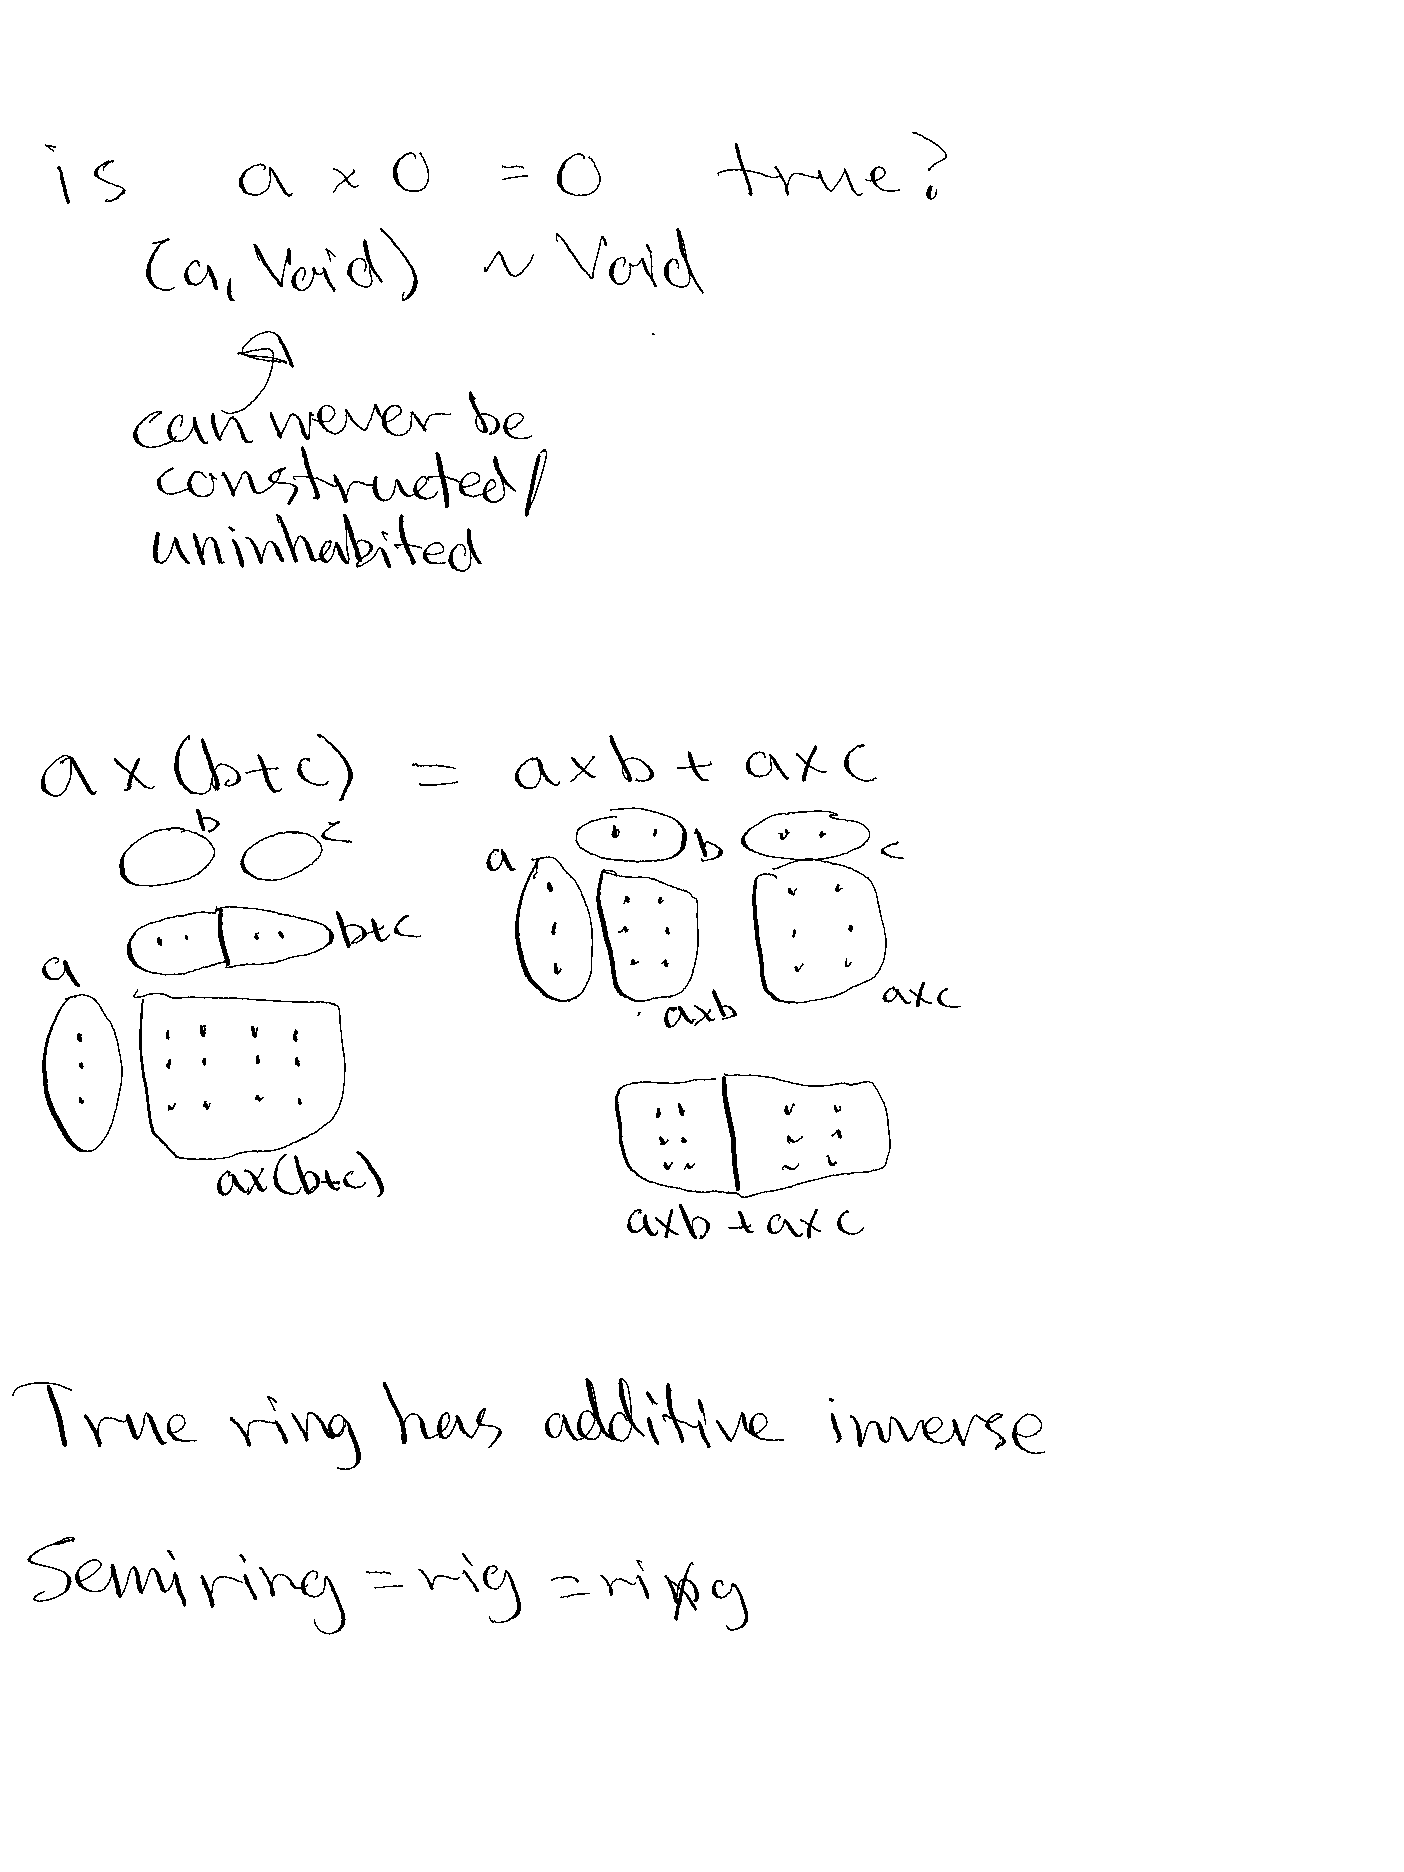 is a × 0 = 0 true?
(a, Void) ~ Void
can never be
constructed/
uninhabited
a × (b+c) = a×b + a×c
b c
b+c
a
a×(b+c)
a b c
a×b a×c
a×b + a×c
True ring has additive inverse
Semiring = rig = ring